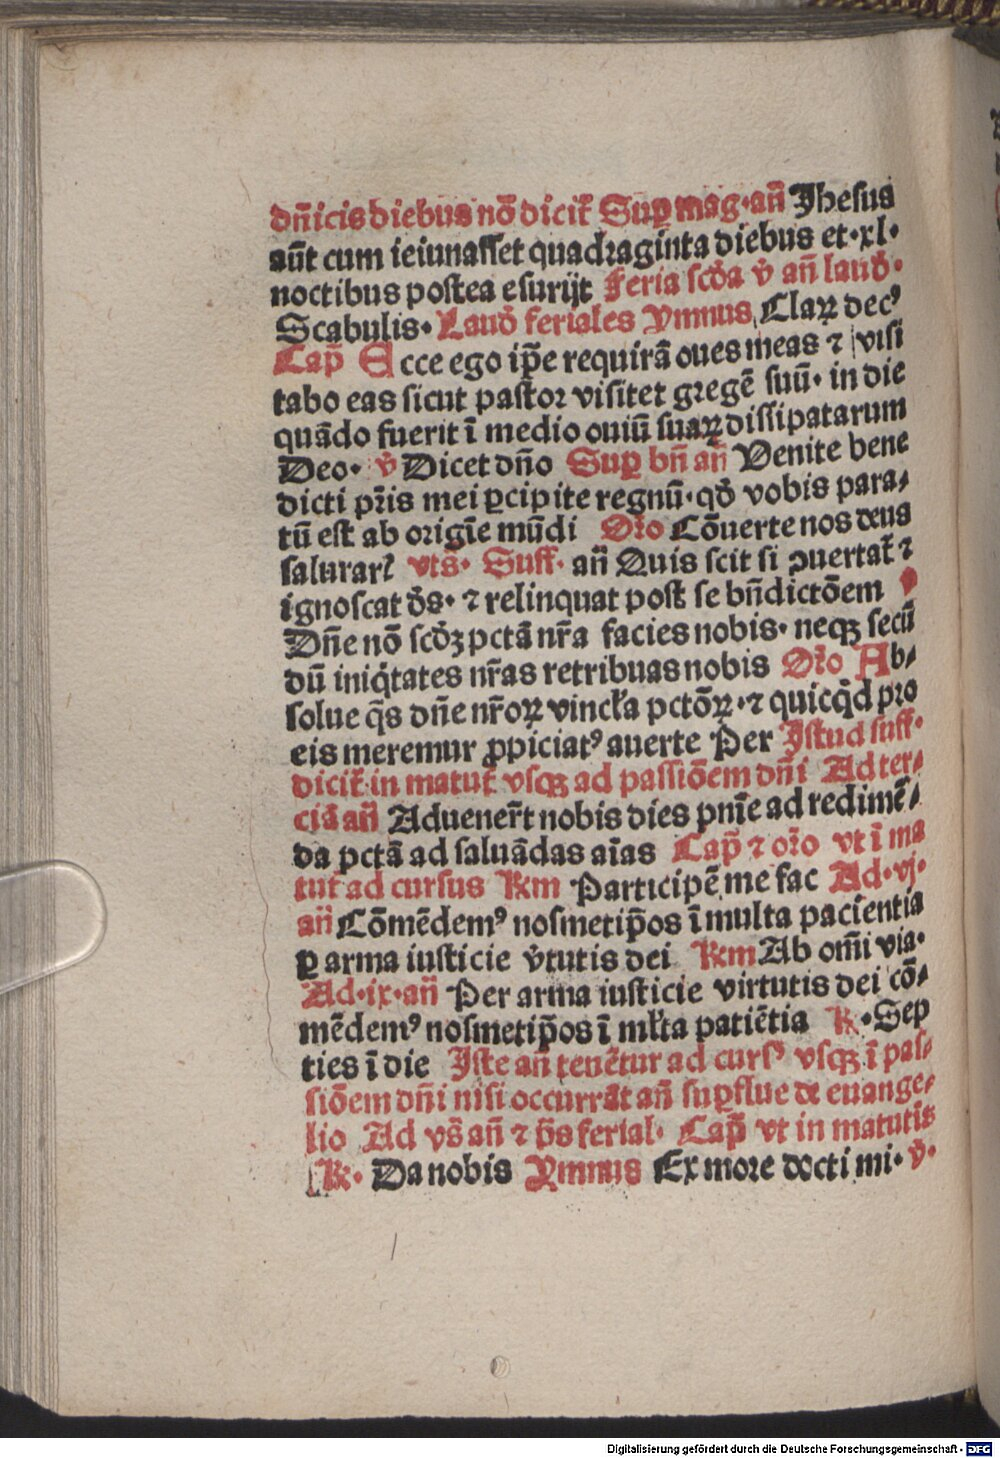 dn̄icis diebus nō dicit᷑ Suꝑ mag·an̄ Jhesus
aūt cum ieiunasset quadraginta diebus et·xl·
noctibus postea esurijt Feria scd̓a v̓ an̄ laud̓·
Scabulis· Laud̓ feriales Ymnus Claꝝ decꝰ
Cap̄ Ecce ego ip̄e requirā oues meas ⁊ visi
tabo eas sicut pastor visitet gregē suū· in die
quādo fuerit ī medio ouiū suaꝝ dissipatarum
Deo· v̓ Dicet dn̄o Suꝑ bn̄ an̄ Venite bene
dicti pr̄is mei ꝑcipite regnū·qd̓ vobis para⸗
tū est ab origīe mūdi Or̄o Cōuerte nos deus
salutarꝭ vts̄· Suff· an̄ Quis scit si ꝯuertat᷑ ⁊
ignoscat d̓s· ⁊ relinquat post se bn̄dictōem
Dn̄e nō scd̓ꝫ pctā nr̄a facies nobis· neqꝫ secū
dū iniq̇tates nr̄as retribuas nobis Or̄o Ab⸗
solue q̄s dn̄e nr̄oꝝ vincl̓a pctōꝝ·⁊ quicq̇d pro
eis meremur ꝓpiciatꝰ auerte Per Jstud suff·
dicit᷑ in matut᷑ vsqꝫ ad passiōem dn̄i Ad ter⸗
ciā an̄ Aduener̄t nobis dies pnīe ad redimē⸗
da pctā ad saluādas aīas Cap̄ ⁊ or̄o vt ī ma
tut᷑ ad cursus Rm Participē me fac Ad·vj·
an̄ Cōmēdemꝰ nosmetip̄os ī multa pacientia
ꝑ arma iusticie v̓tutis dei Rm Ab om̄i via·
Ad·ix·an̄ Per arma iusticie virtutis dei cō⸗
mēdemꝰ nosmetip̄os ī ml̓ta patiētia ℟·Sep
ties ī die Jste an̄ tenēt᷑ur ad cursꝰ vsqꝫ ī pas⸗
siōem dn̄i nisi occurrāt an̄ suꝑflue de euange⸗
lio Ad vs̄ an̄ ⁊ p̄s ferial· Cap̄ vt in matutīs
℟· Da nobis Ymnus Ex more docti mi· v̓·
Digitalisierung gefördert durch die Deutsche Forschungsgemeinschaft - DFG